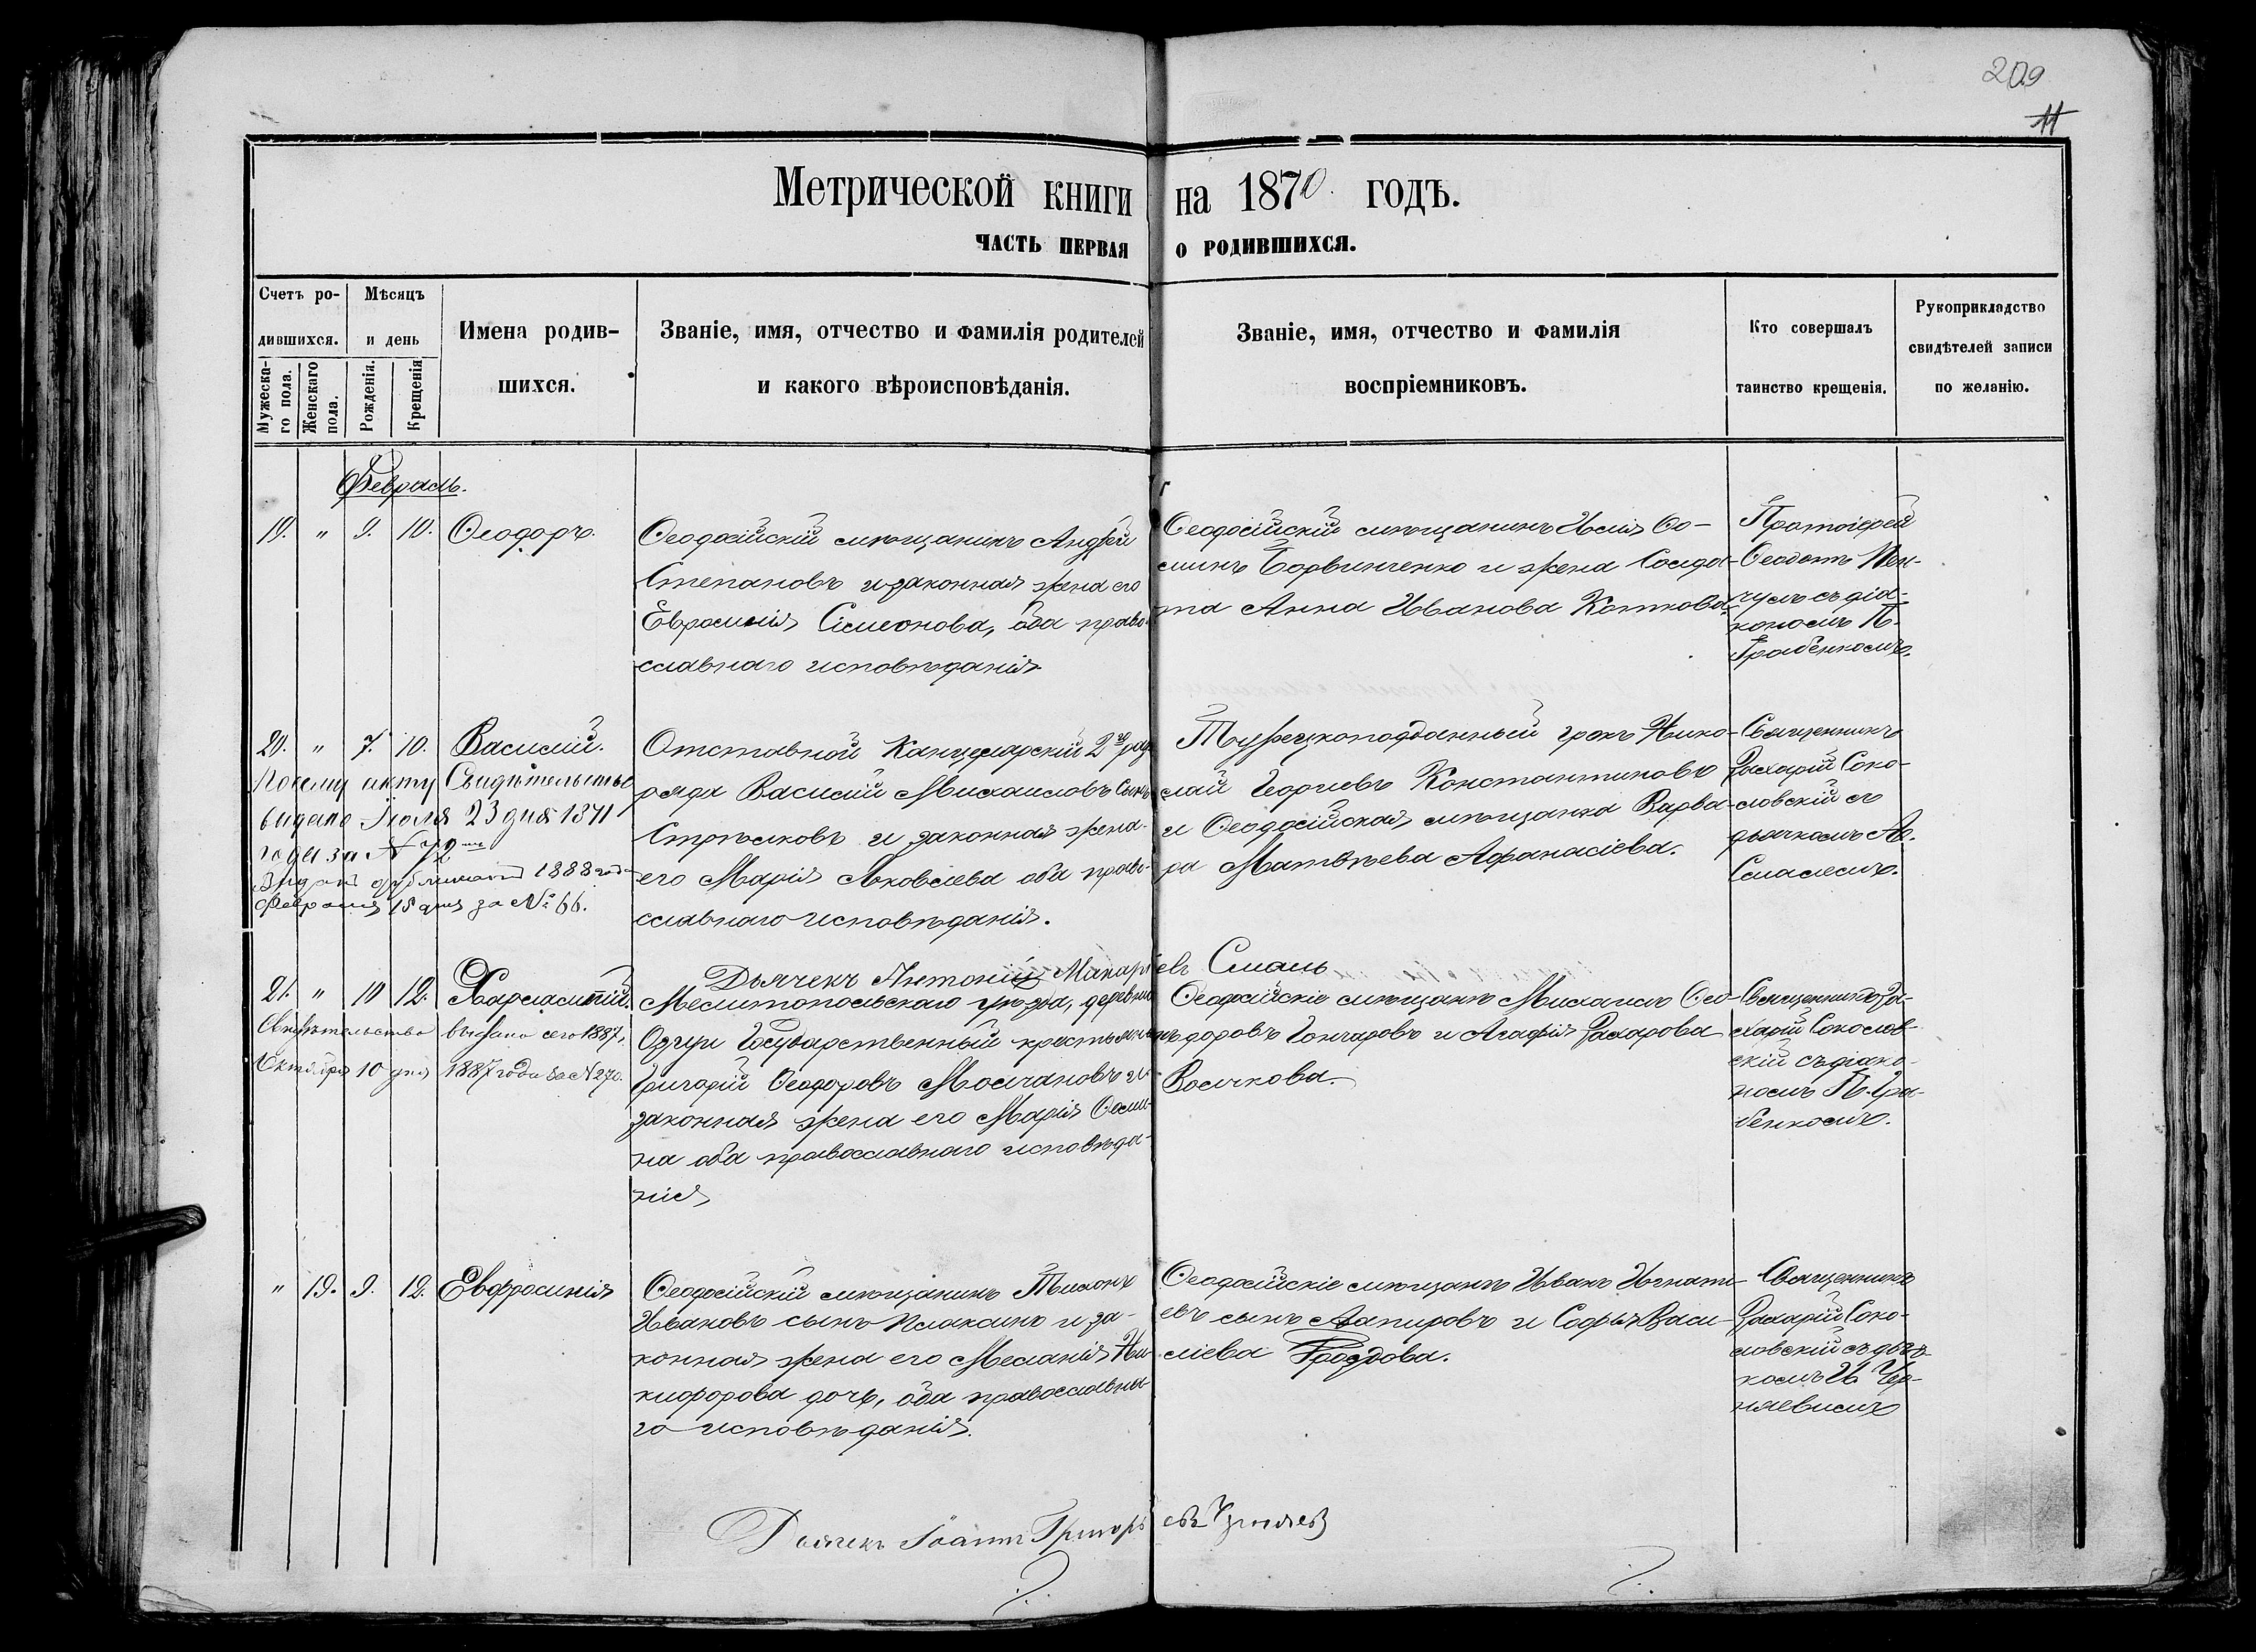 209
11
Метрической книги на 1870. годъ.
ЧАСТЬ ПЕРВАЯ О РОДИВШИХСЯ.
Счетъ ро-
дившихся.
Мужеска-
го пола.
Женскаго
пола.
Мѣсяцъ
и день
Рожденія.
Крещенія
Имена родив-
шихся.
Званіе, имя, отчество и фамилія родителей
и какого вѣроисповѣданія.
Званіе, имя, отчество и фамилія
воспріемниковъ.
Кто совершалъ
таинство крещенія.
Рукоприкладство
свидѣтелей записи
по желанію.
Февраль.
19. " 9. 10. Ѳеодоръ.
Ѳеодосійскій мѣщанинъ Андрей
Степановъ и законная жена его
Евросинія Симеонова, оба право-
славнаго исповѣданія
Ѳеодосійскій мѣщанинъ Илія Ѳо-
минъ Борвинченко и жена Солда-
та Анна Иванова Коткова.
Протоіерей
Ѳеодотъ
съ діа-
кономъ П.
Грабенкомъ.
20. " 7. 10. Василій.
Посему акту Свидѣтельство
видано Іюля 23 дня 1871
года за N 72
Выданъ дубликатъ 1888 года
Февраля 15 дня за № 66.
Отставной Канцелярскій 2го раз-
ряда Василій Михаиловъ Сынъ
Стрѣлковъ и законная жена
его Марія Яковлева оба право-
славнаго исповѣданія.
Турецкоподданный грекъ Нико-
лай Георгіевъ Константиновъ
и Ѳеодосійская мѣщанка Варва-
ра Матвѣева Афанасіева.
Священникъ
Захарій Соко-
ловскій съ
дьячкомъ А.
Смалемъ.
Дьячекъ Антоній Макаріевъ Смаль
21. " 10 12. Харлампій.
Свидѣтельство выдано сего 1887 г.
Октября 10 дня 1887 года за N 270.
Мелитопольскаго уѣзда, деревни
Государственный крестьянинъ
Григорій Ѳеодоровъ Молчановъ и
законная жена его Марія Ѳоми-
на оба православнаго исповѣда-
нія
Ѳеодосійскіе мѣщане Михаилъ Ѳео-
доровъ Гончаровъ и Агафія Захарова
Волчкова.
Священникъ За-
харій Соколов-
скій съ діако-
номъ П. Гра-
бенкомъ.
" 19. 9. 12. Евфросинія
Ѳеодосійскій мѣщанинъ Тихонъ
Ивановъ сынъ Плаксинъ и за-
конная жена его Меланія Ни-
кифорова дочь, оба православна-
го исповѣданія.
Ѳеодосійскіе мѣщане Иванъ Игнаті-
евъ сынъ Лапировъ и Софья Васи-
ліева Гроздова.
Священникъ
Захарій Соко-
ловскій съ дьяч-
комъ И. Чер-
няевымъ
Дьячекъ Іоаннъ Григорьевъ Черняевъ